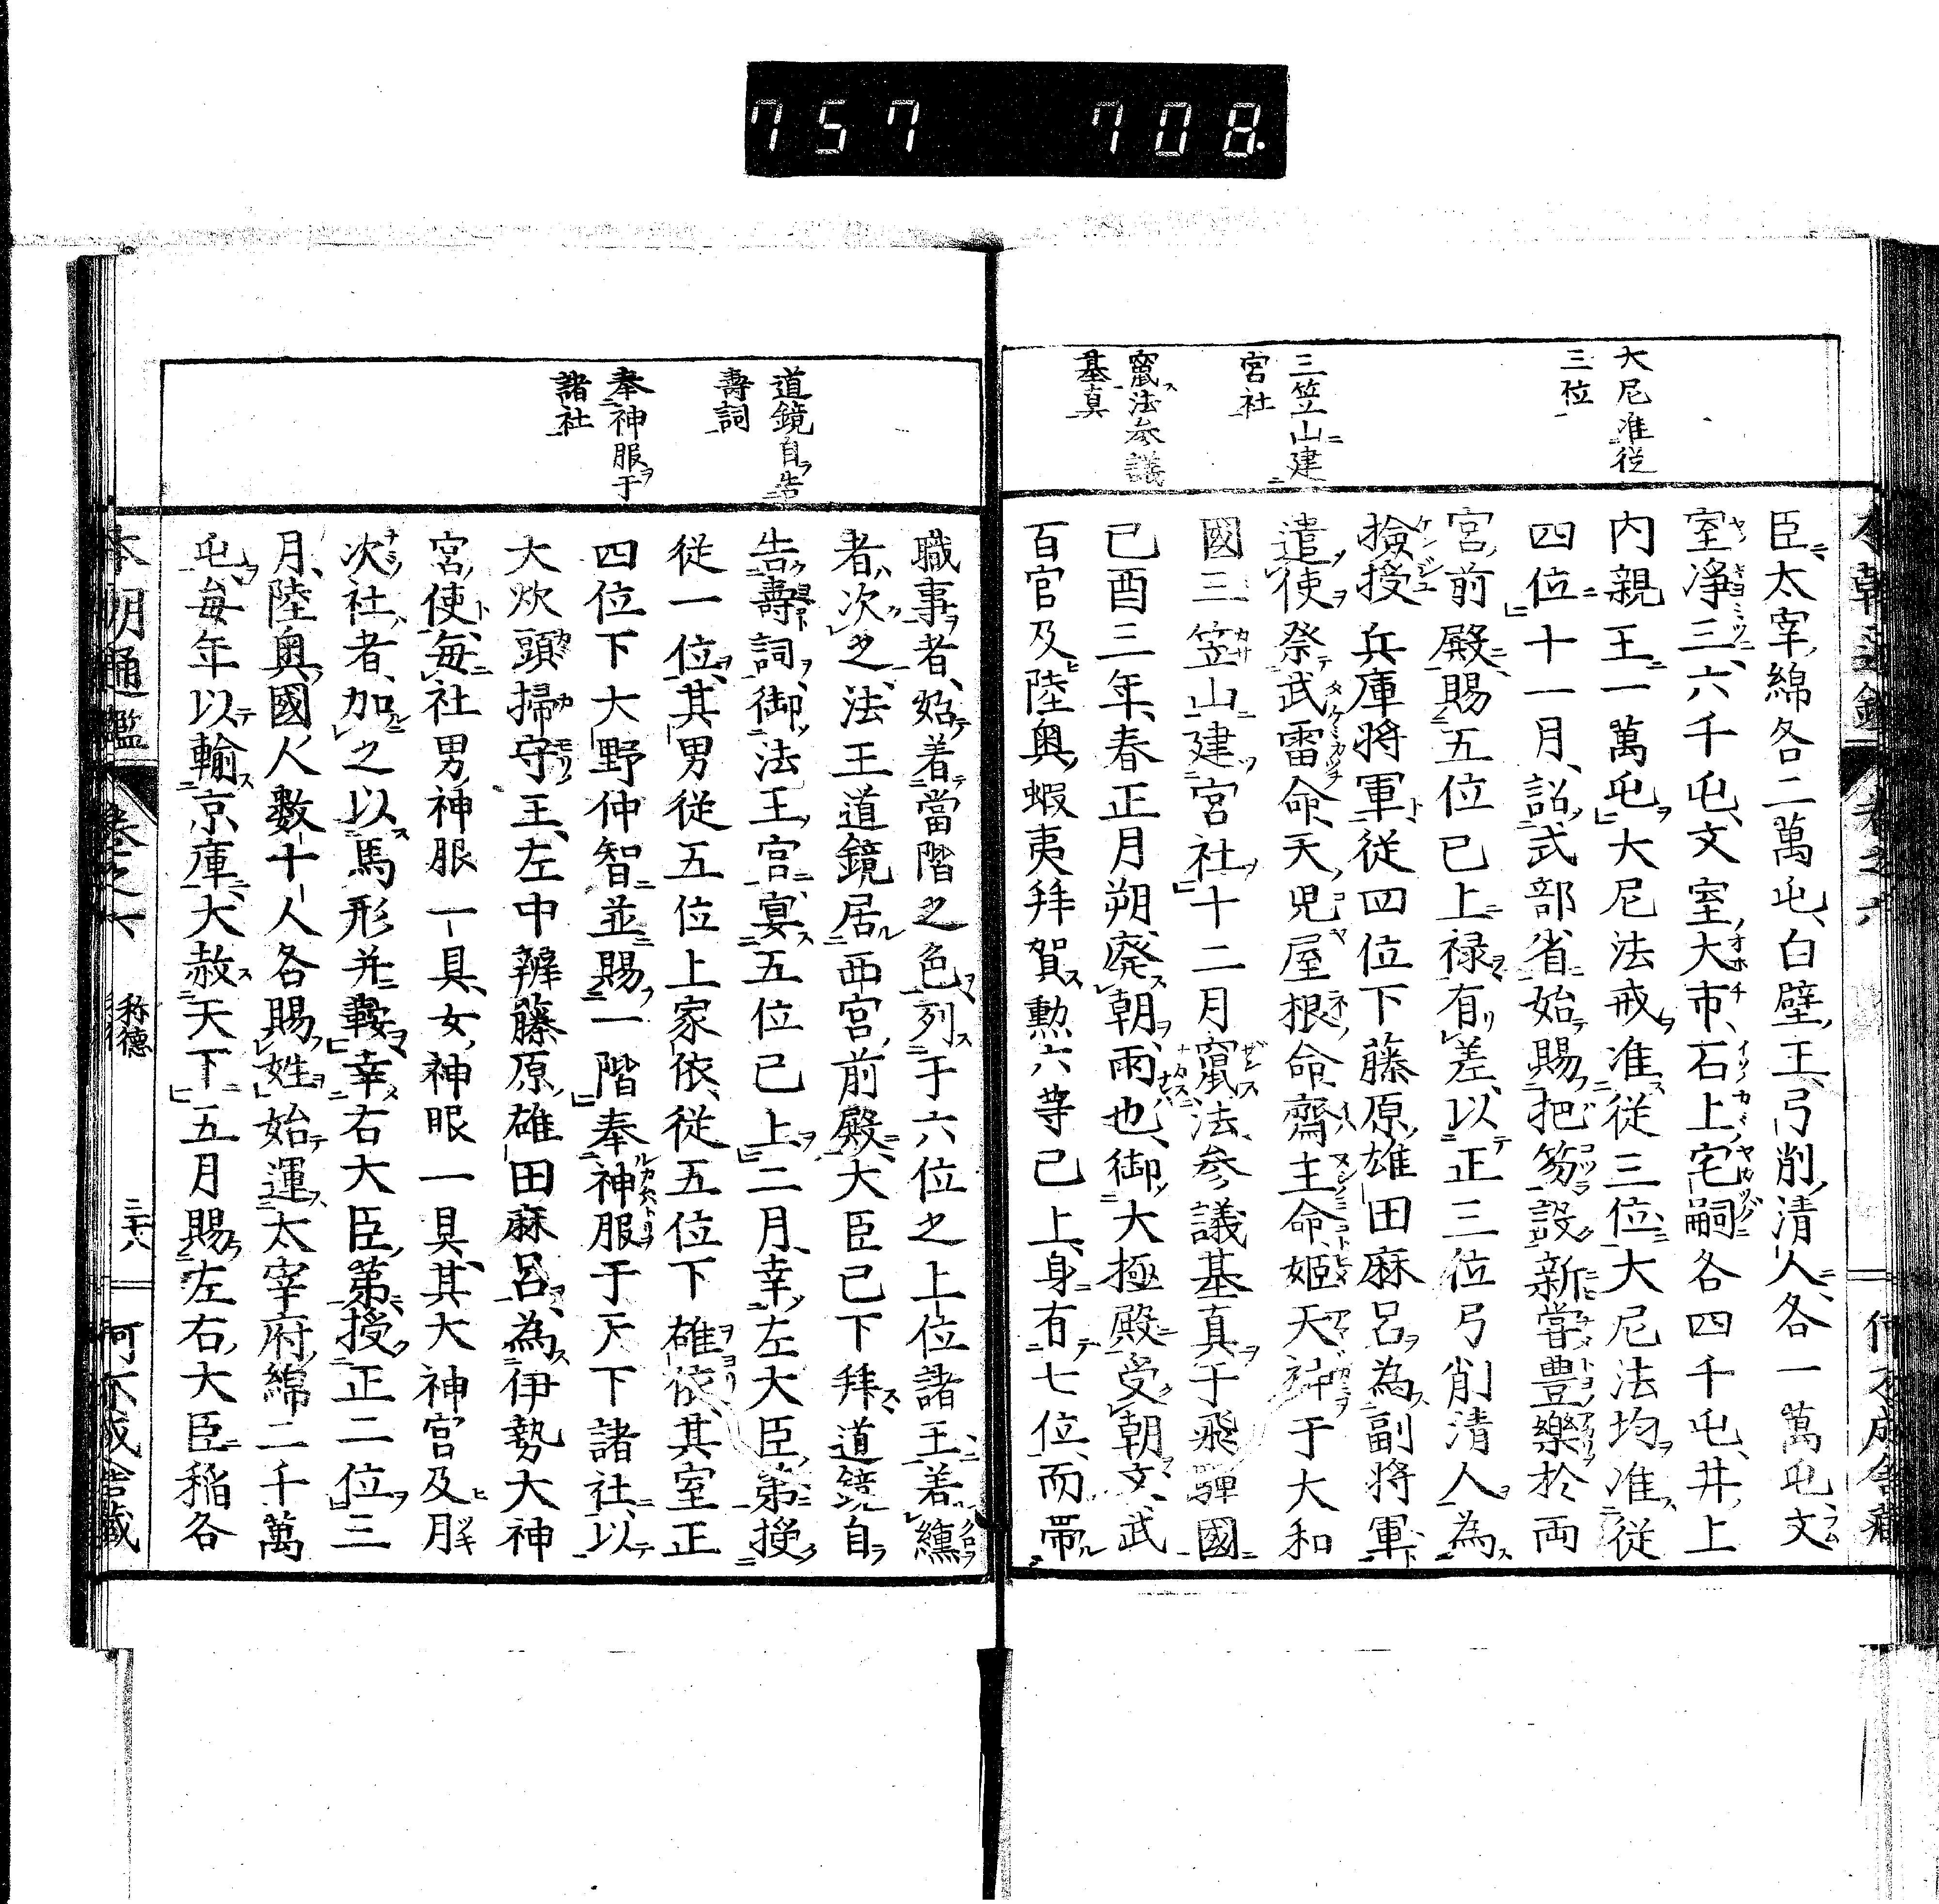 757 708.
大尼准従
三位
三笠山建
宮社
竄法参議
基真
臣太宰綿各二萬屯白壁王弓削清人各一萬屯文
室浄三六千屯文室大市石上宅嗣各四千屯井上
内親王一萬屯大尼法戒准従三位大尼法均准従
四位十一月詔式部省始賜把笏設新嘗豊樂於両
宮前殿賜五位已上禄有差以正三位弓削清人為
撿授兵庫将軍従四位下藤原雄田麻呂為副将軍
遣使祭武雷命天児屋根命齋主命姫天神于大和
國三笠山建宮社十二月竄法参議基真于飛驒國
己酉三年春正月朔廃朝雨也御大極殿受朝文武
百官及陸奥蝦夷拜賀勲六等已上身有七位而帶
道鏡自告
壽詞
奉神服于
諸社
職事者始着當階之色列于六位之上位諸王着纁
者次之法王道鏡居西宮前殿大臣已下拜道鏡自
告壽詞御法王宮宴五位已上二月幸左大臣第授
従一位其男従五位上家依従五位下雄依其室正
四位下大野仲智並賜一階奉神服于天下諸社以
大炊頭掃守王左中辨藤原雄田麻呂為伊勢大神
宮使毎社男神服一具女神服一具其大神宮及月
次社者加之以馬形并鞍幸右大臣第授正二位三
月陸奥國人数十人各賜姓始運太宰府綿二千萬
屯毎年以輸京庫大赦天下五月賜左右大臣稲各
本朝通鑑 巻之六 称徳 二十八 何不成舎藏